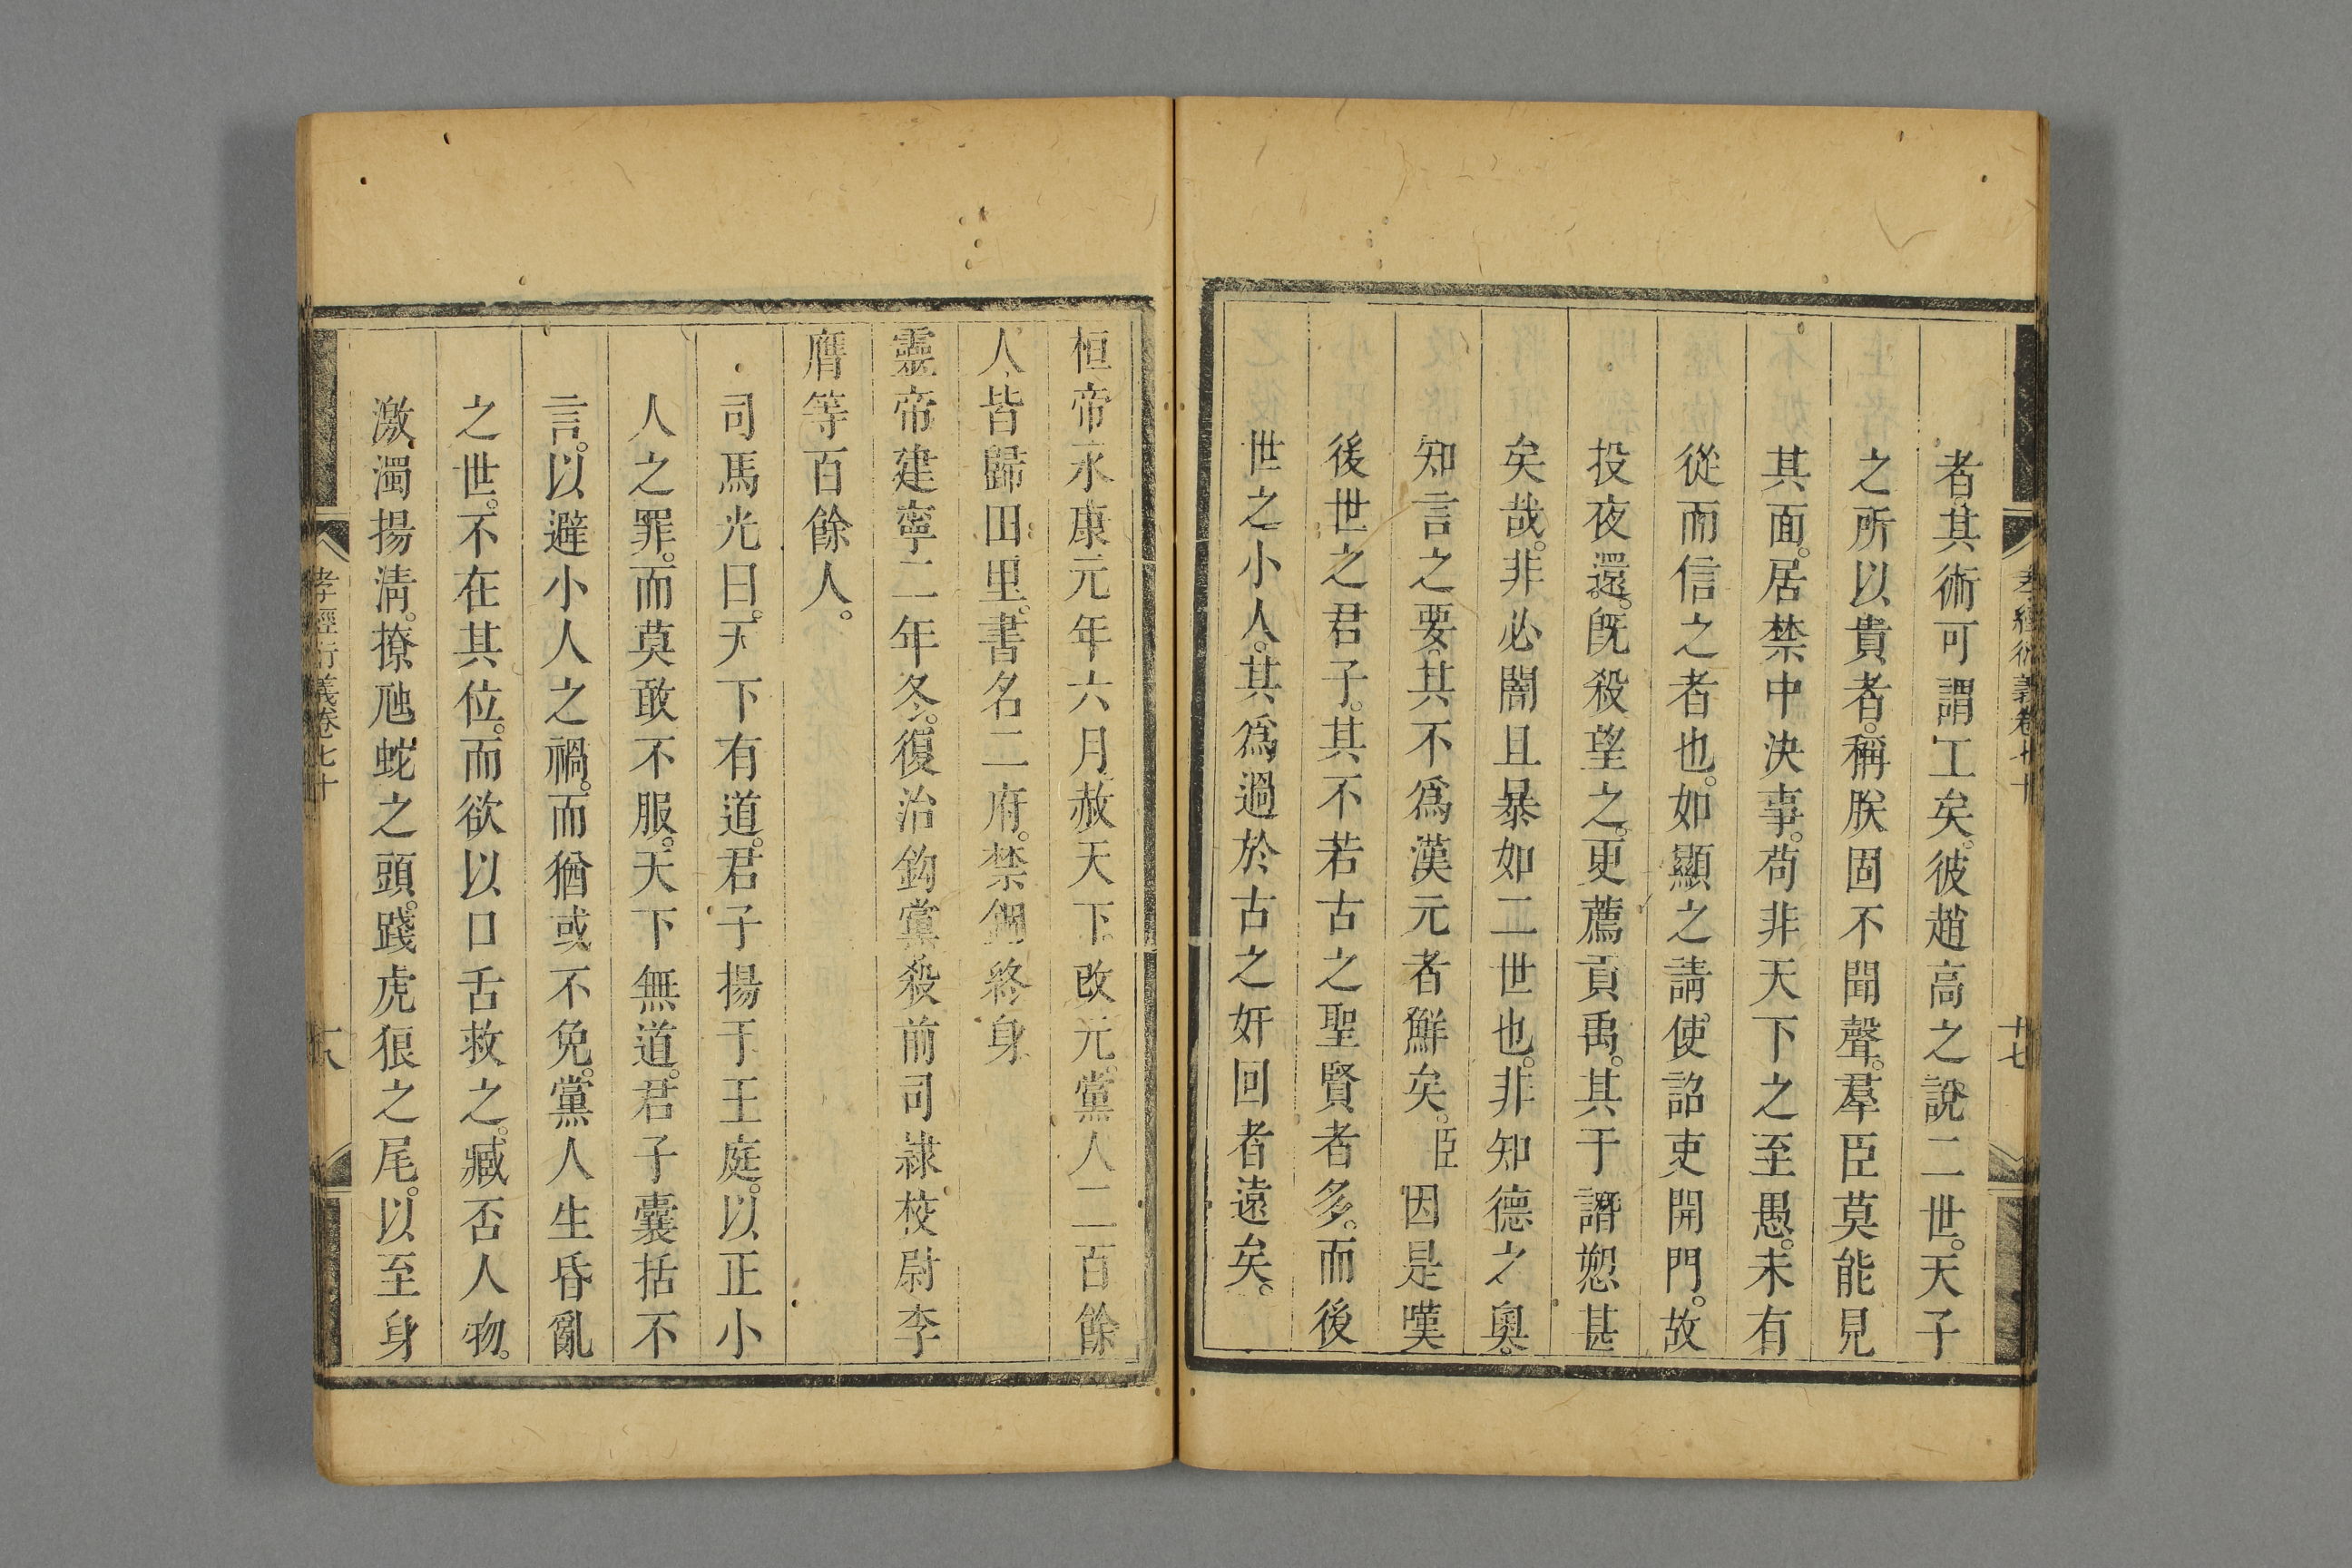 孝經衍義卷七十
十七
者。其術可謂工矣。彼趙高之說二世。天子
之所以貴者。稱朕固不聞聲。羣臣莫能見
其面。居禁中決事。苟非天下之至愚。未有
從而信之者也。如顯之請使詔吏開門。故
投夜還。旣殺望之。更薦貢禹。其于譖愬甚
矣哉。非必闇且暴如二世也。非知德之奧。
知言之要。其不爲漢元者鮮矣。臣因是嘆
後世之君子。其不若古之聖賢者多。而後
世之小人。其爲過於古之奸回者遠矣。
桓帝永康元年六月赦天下改元。黨人二百餘
人皆歸田里。書名二府。禁錮終身
靈帝建寧二年冬。復治鈎黨殺前司隸校尉李
膺等百餘人。
司馬光曰。天下有道。君子揚于王庭。以正小
人之罪。而莫敢不服。天下無道。君子囊括不
言。以避小人之禍。而猶或不免。黨人生昏亂
之世。不在其位。而欲以口舌救之。臧否人物。
激濁揚淸。撩虺蛇之頭。踐虎狼之尾。以至身
孝經衍義卷七十
十八